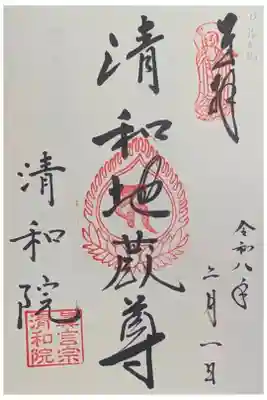 奉拝
令和八年
月一日
清和地蔵尊
清和院
真言宗
清和院